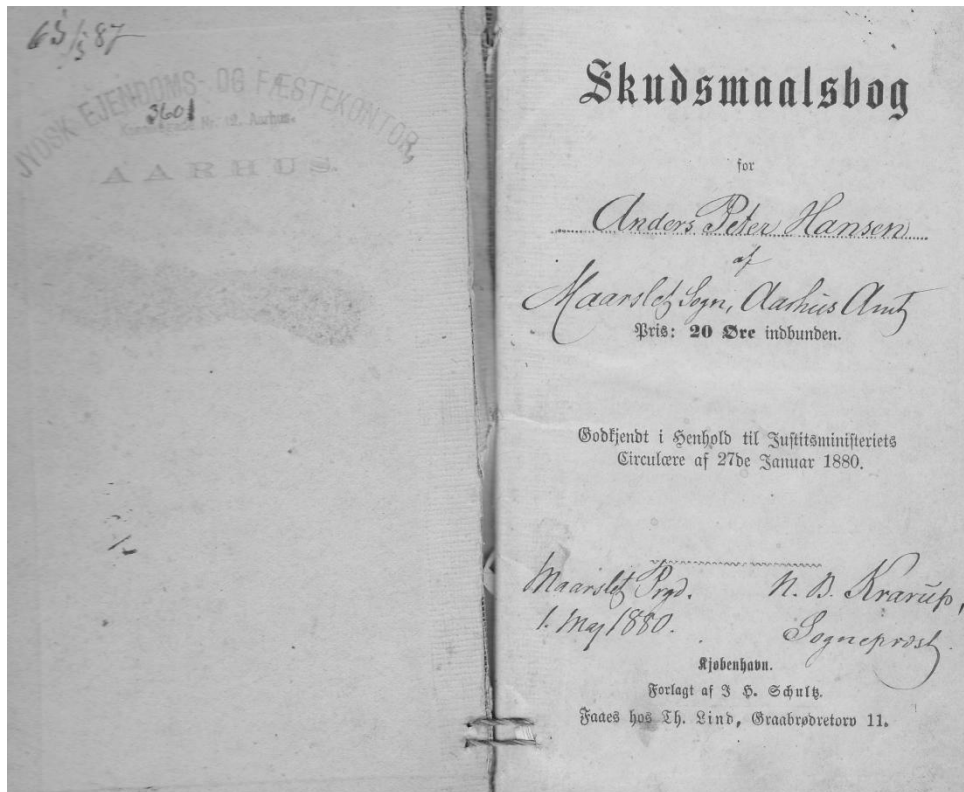 JYDSK EJENDOMS- OG FÆSTEKONTOR,
3601
Nr. 12, Aarhus.
AARHUS.
Skudsmaalsbog
for
Anders Peter Hansen
af
Maarslet Sogn, Aarhus Amt
Pris: 20 Øre indbunden.
Godkjendt i Henhold til Justitsministeriets
Circulære af 27de Januar 1880.
Maarslet Prgd. N. B. Krarup,
1. Maj 1880. Sognepræst
Kjøbenhavn.
Forlagt af J H. Schultz.
Faaes hos Th. Lind, Graabrødretorv 11.